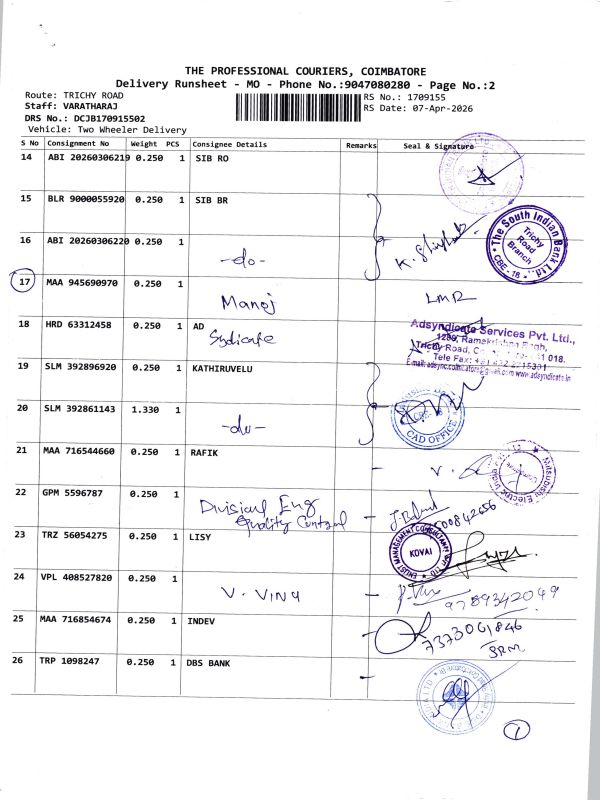 THE PROFESSIONAL COURIERS, COIMBATORE
Delivery Runsheet - MO - Phone No.:9047080280 - Page No.:2
Route: TRICHY ROAD
RS No.: 1709155
Staff: VARATHARAJ
RS Date: 07-Apr-2026
DRS No.: DCJB170915502
Vehicle: Two Wheeler Delivery
S No Consignment No Weight PCS Consignee Details Remarks Seal & Signature
14 ABI 20260306219 0.250 1 SIB RO
15 BLR 9000055920 0.250 1 SIB BR
The South Indian Bank Ltd.
Trichy Road Branch
CBE - 18
16 ABI 20260306220 0.250 1
-do-
17 MAA 945690970 0.250 1
Manoj
LMR
18 HRD 63312458 0.250 1 AD
Sydicate
Adsyndicate Services Pvt. Ltd.,
Trichy Road,
19 SLM 392896920 0.250 1 KATHIRUVELU
20 SLM 392861143 1.330 1
-do-
CAD OFFICE
21 MAA 716544660 0.250 1 RAFIK
Mitsubishi Electric
22 GPM 5596787 0.250 1
Divisional Eng
Quality Control
23 TRZ 56054275 0.250 1 LISY
KOVAI
24 VPL 408527820 0.250 1
V. VINU
9789342049
25 MAA 716854674 0.250 1 INDEV
7373061846
SRM
26 TRP 1098247 0.250 1 DBS BANK
1